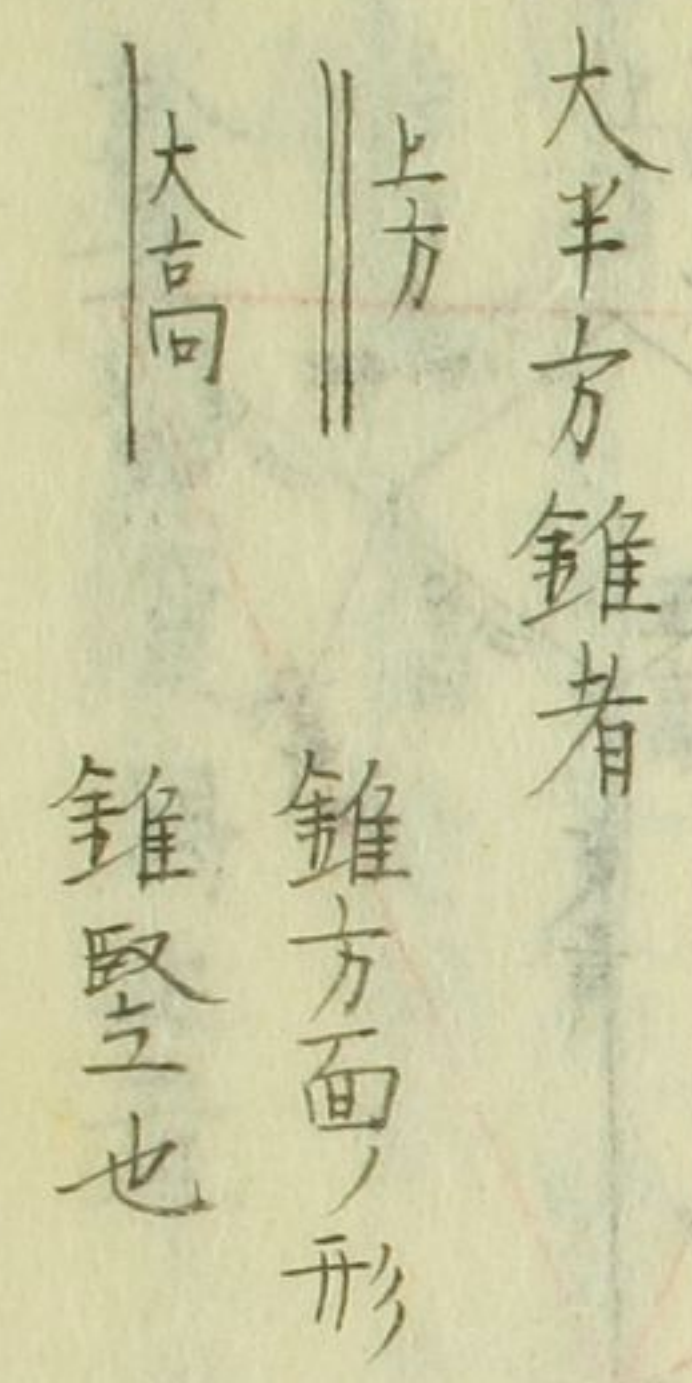 大半方錐者
上方
錐方面ノ形
大高
錐竪也